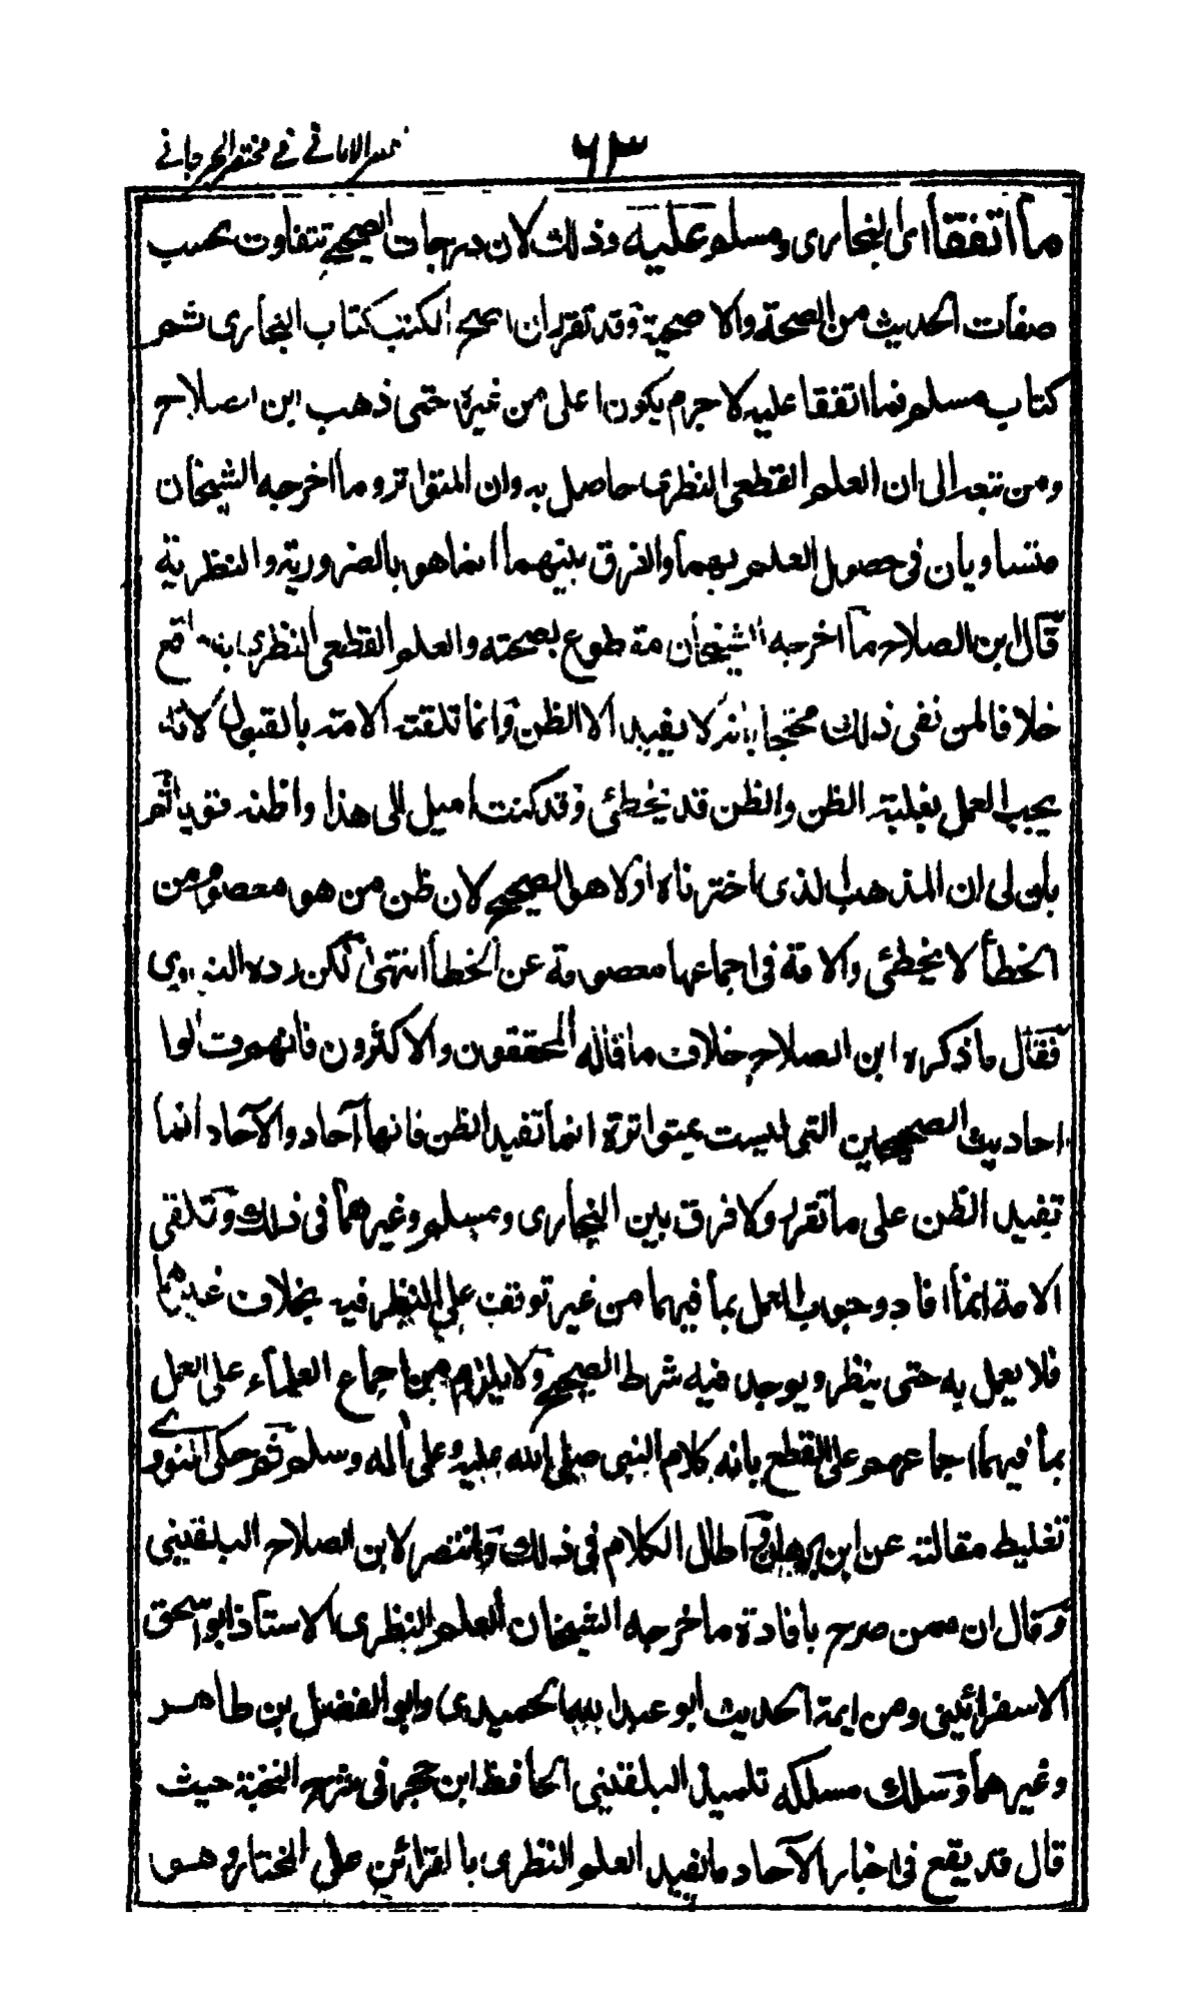 ٦٣ ظفر الاماني في مختصر الجرجاني
ما اتفقا اى البخارى ومسلم عليه وذلك لان درجات الصحيح تتفاوت بحسب
صفات الحديث من الصحة والاصحية وقد تقرر ان اصح الكتب كتاب البخارى ثم
كتاب مسلم فما اتفقا عليه لا جرم يكون اعلى من غيره حتى ذهب ابن الصلاح
ومن تبعه الى ان العلم القطعى النظرى حاصل به وان المتواتر وما اخرجه الشيخان
متساويان فى حصول العلم بهما والفرق بينهما انما هو بالضرورية والنظرية
قال ابن الصلاح ما اخرجه الشيخان مقطوع بصحته والعلم القطعى النظرى به واقع
خلافا لمن نفى ذلك محتجا بانه لا يفيد الا الظن وانما تلقته الامة بالقبول لانه
يجب العمل بغلبة الظن والظن قد يخطئ وقد كنت اميل الى هذا واظنه قويا ثم
بان لى ان المذهب الذى اخترناه اولا هو الصحيح لان ظن من هو معصوم من
الخطأ لا يخطئ والامة فى اجماعها معصومة عن الخطأ انتهى لكن رده النووى
فقال ما ذكره ابن الصلاح خلاف ما قاله المحققون والاكثرون فانهم قالوا
احاديث الصحيحين التى ليست بمتواترة انما تفيد الظن فانها آحاد والآحاد انما
تفيد الظن على ما تقرر ولا فرق بين البخارى ومسلم وغيرهما فى ذلك وتلقى
الامة انما افاد وجوب العمل بما فيهما من غير توقف على النظر فيه بخلاف غيرهما
فلا يعمل به حتى ينظر ويوجد فيه شرط الصحيح ولا يلزم من اجماع العلماء على العمل
بما فيهما اجماعهم على القطع بانه كلام النبى صلى الله عليه وعلى آله وسلم ثم حكى النووى
تغليط مقالته عن ابن برهان واطال الكلام فى ذلك وانتصر لابن الصلاح البلقينى
وقال ان ممن صرح بافادة ما خرجه الشيخان العلم النظرى الاستاذ ابو اسحق
الاسفرائينى ومن ايمة الحديث ابو عبد الله الحميدى وابو الفضل بن طاهر
وغيرهما وسلك مسلكه تلميذ البلقينى الحافظ ابن حجر فى شرح النخبة حيث
قال قد يقع فى اخبار الآحاد ما يفيد العلم النظرى بالقرائن على المختار وهو